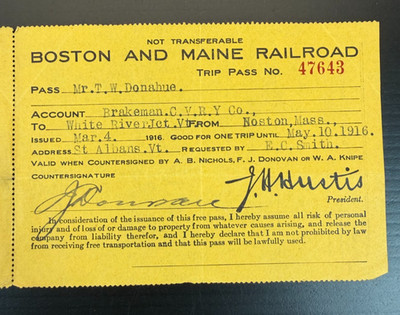 NOT TRANSFERABLE
BOSTON AND MAINE RAILROAD
TRIP PASS NO. 47643
PASS Mr.T.W.Donahue.
ACCOUNT Brakeman.C.V.R.Y Co.,
TO White RiverJct.Vt FROM Noston,Mass.,
ISSUED Mar.4. 1916. GOOD FOR ONE TRIP UNTIL May.10.1916.
ADDRESS St Albans.Vt. REQUESTED BY E.C.Smith.
VALID WHEN COUNTERSIGNED BY A. B. NICHOLS, F. J. DONOVAN OR W. A. KNIPE
COUNTERSIGNATURE
J.H.Hustis
President.
In consideration of the issuance of this free pass, I hereby assume all risk of personal
injury and of loss of or damage to property from whatever causes arising, and release the
company from liability therefor, and I hereby declare that I am not prohibited by law
from receiving free transportation and that this pass will be lawfully used.